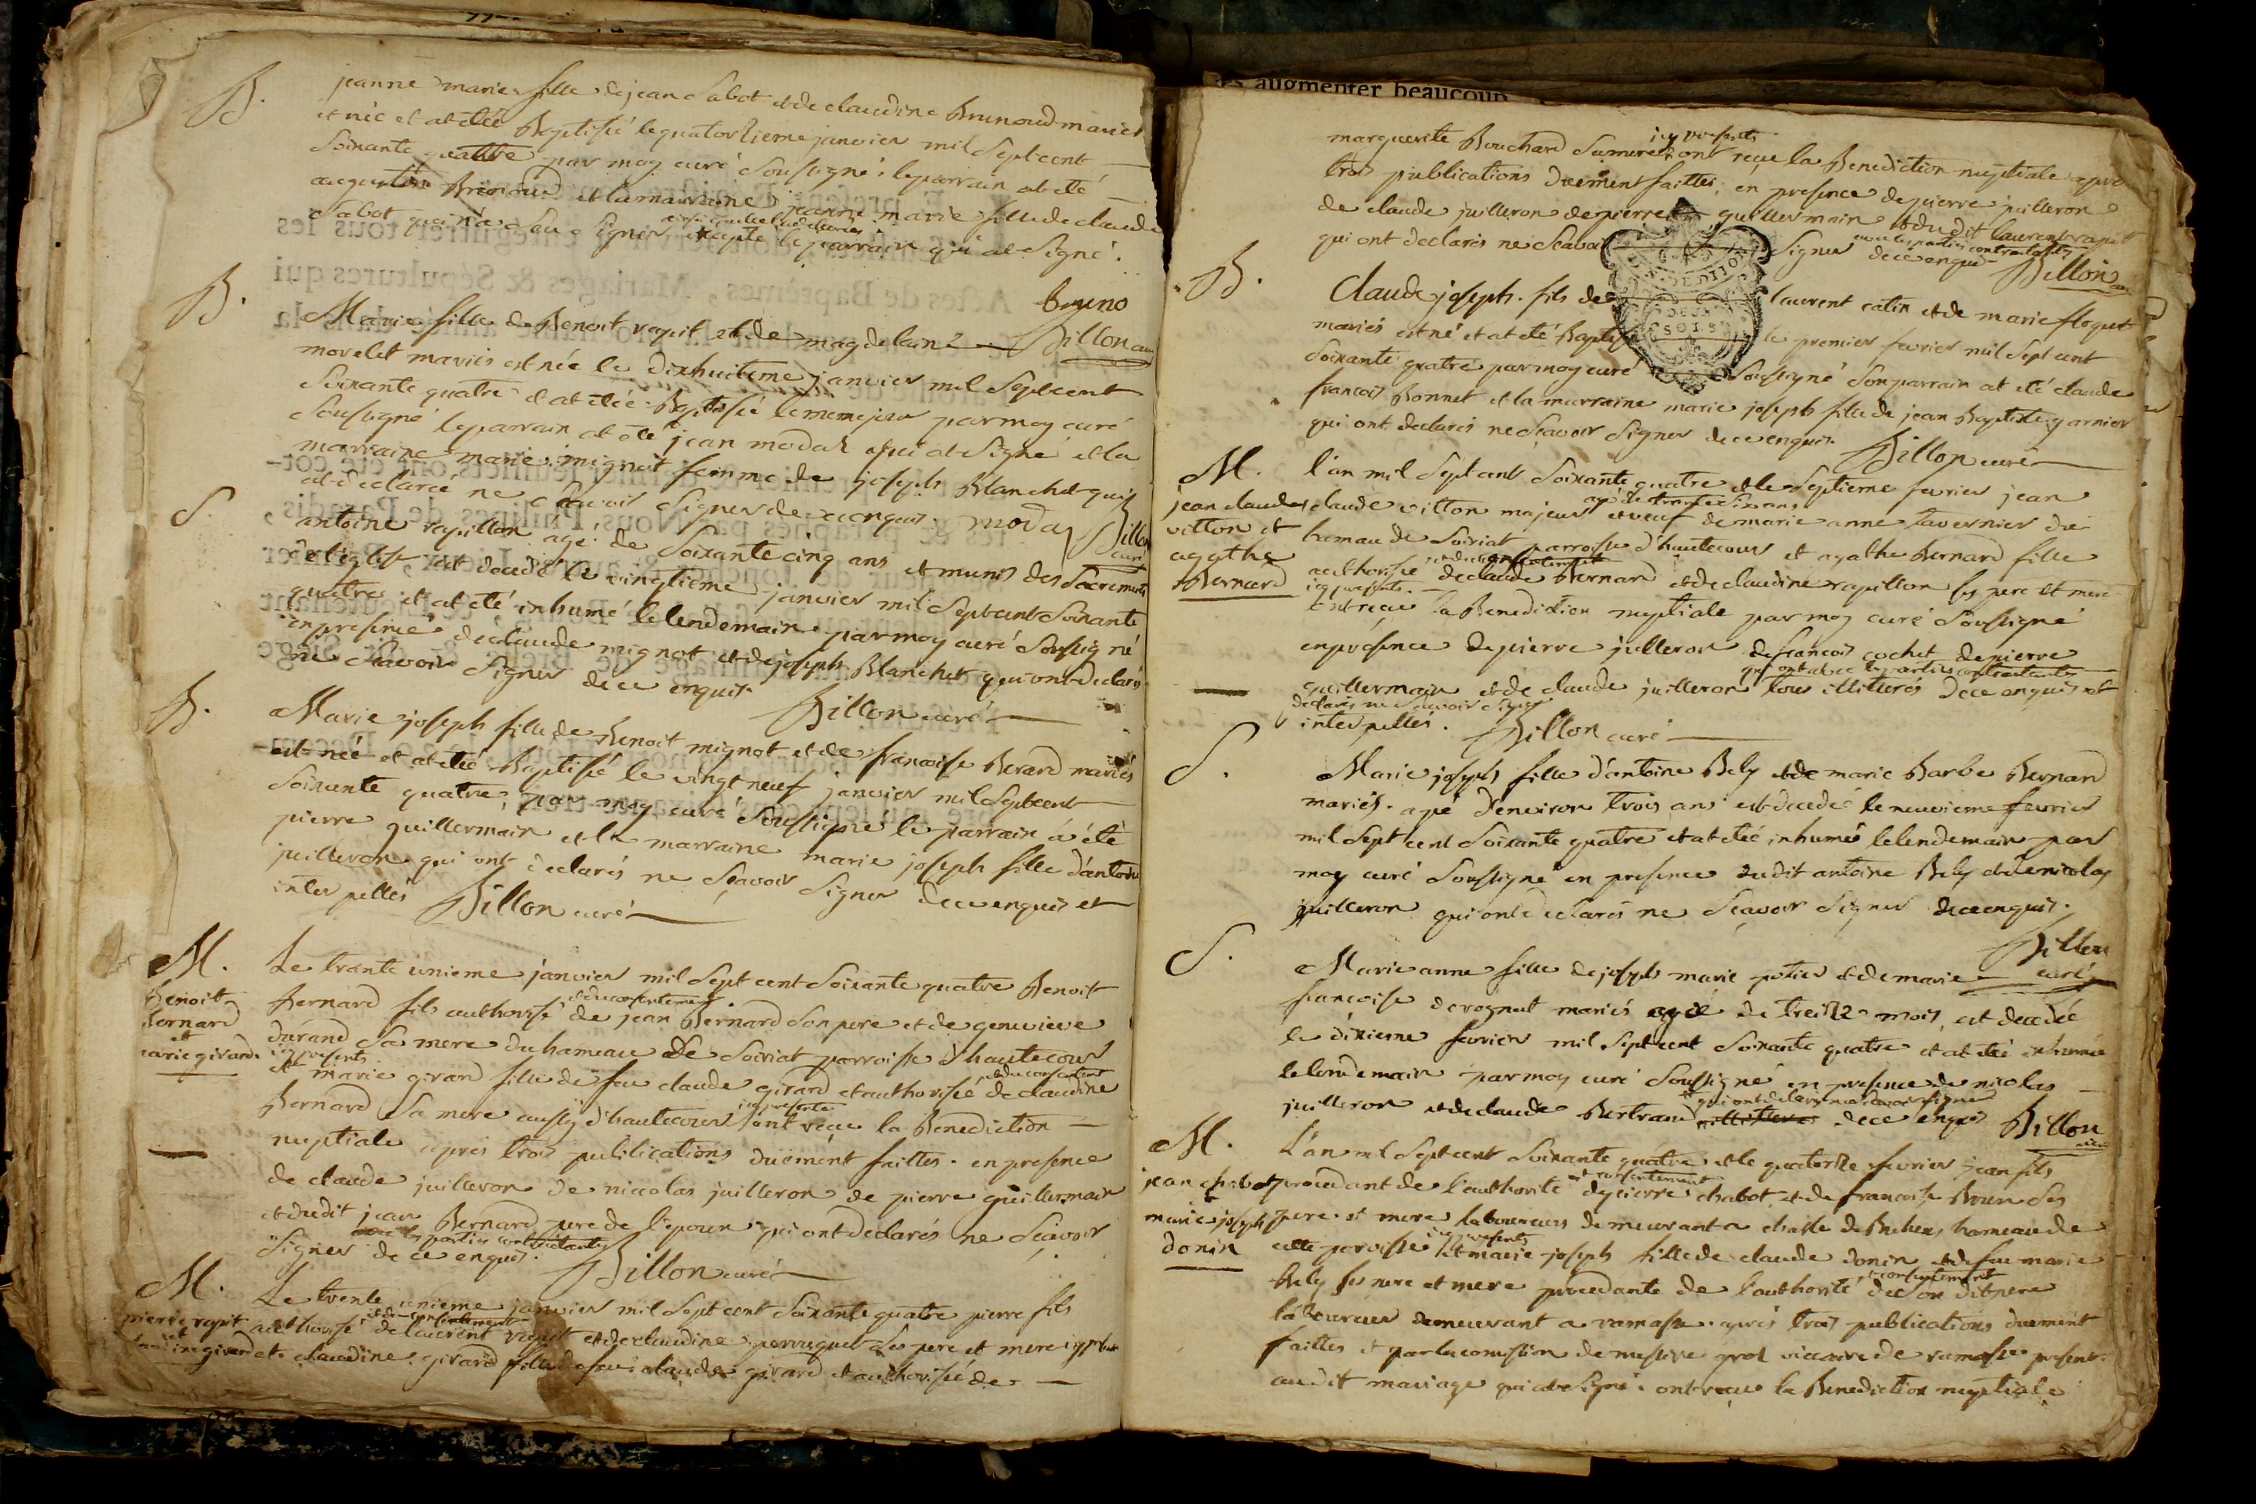 B. jeanne marie fille de jean sabot et de claudine Brunoud mariés
est née et at etée Baptisée le quatorzieme janvier mil sept cent
soixante quattre par moy curé soussigné. le parrain at eté
augustin Brunoud et la marraine jeanne marie fille de claude
sabot qui n'a sçu signer excepté le parrain qui at signé.
bruno
Billon curé
B. Marie fille de Benoit rapit et de magdelaine
morelet mariés est née le dixhuitieme janvier mil sept cent
soixante quatre et at etée Baptisée le meme jour par moy curé
soussigné le parrain at eté jean modas qui at signé et la
marraine marie mignot femme de joseph Blanchet qui
at declaré ne sçavoir signer de ce enquis. modas Billon
curé
S. antoine rapillon agé de soixante cinq ans et munis des sacrements
de l'eglise est decedé le vingtieme janvier mil sept cent soixante
quatre et at eté inhumé le lendemain par moy curé soussigné
en presence de claude mignot et de joseph Blanchet qui ont declarés
ne sçavoir signer de ce enquis.
Billon curé
B. Marie joseph fille de Benoit mignot et de francoise Berard mariés
est née et at eteé Baptisée le vingt neuf janvier mil sept cent
soixante quatre, par moy curé soussigné le parrain a été
pierre guillermain et la marraine marie joseph fille d'antoine
juilleron qui ont declarés ne sçavoir signer de ce enquis et
interpellés Billon curé
M. Le trante unieme janvier mil sept cent soixante quatre Benoit
Benoit
Bernard
et
marie girard
et du consentement
Bernard fils authorisé de jean Bernard son pere et de genevieve
durand sa mere du hameau de soiriat parroisse d'hautecour
icy presents
et marie girard fille de feu claude girard et authorisée de claudine
et du consentement
Bernard sa mere aussy d'hautecour ont reçue la Benediction
icy presente
nuptiale après trois publications duëment faittes. en presence
de claude juilleron de niccolas juilleron de pierre guillermain
et dudit jean Bernard pere de l'epoux qui ont declarés ne sçavoir
avec les parties contractantes
signer de ce enquis.
Billon curé
M. Le trente unieme janvier mil sept cent soixante quatre pierre fils
pierre rapit
et
claudine girard
et du consentement
authorisé de laurent rapit et de claudine perruquet ses pere et mere icy presents
et claudine girard fille de feu claude girard et authorisée de
marguerite Bouchard sa mere ont reçue la Benediction nuptiale apres
icy presente
trois publications duement faittes, en presence de pierre juilleron
de claude juilleron de pierre guillermain et dudit laurent rapit
qui ont declarés ne sçavoir signer de ce enquis
avec les parties contractantes
Billon
DEUX
SOLS
B. Claude joseph. fils de laurent catin et de marie floquet
mariés est né et at eté Baptisé le premier fevrier mil sept cent
soixante quatre par moy curé soussigné son parrain at eté claude
francois Bonnet et la marraine marie joseph fille de jean Baptiste garnier
qui ont declarés ne sçavoir signer de ce enquis.
Billon curé
M. L'an mil sept cent soixante quatre et le septieme fevrier jean
jean claude
vitton et
agathe
Bernard
claude vitton majeur et veuf de marie anne tavernier du
hameau de soiriat parroisse d'hautecour et agathe Bernard fille
et du consentement
authorisée de claude Bernard et de claudine rapillon ses pere et mere
icy presents
ont reçue la Benediction nuptiale par moy curé soussigné
en presence de pierre juilleron de francois cochet de pierre
guillermain et de claude juilleron tous illiterés de ce enquis et
qui ont avec les parties contractantes
declarés ne sçavoir signer
interpellés. Billon curé
S. Marie joseph fille d'antoine Bely et de marie Barbe Bernard
mariés. agé d'environ trois ans est decedé le neuvieme fevrier
mil sept cent soixante quatre et at eteé inhumé le lendemain par
moy curé soussigné en presence dudit antoine Bely et de nicolas
juilleron qui ont declarés ne sçavoir signer de ce enquis.
Billon
curé
S. Marie anne fille de joseph marie potier et de marie
francoise derognat mariés agée de treize mois est decedée
le dixieme fevrier mil sept cent soixante quatre et at eteé inhumée
le lendemain par moy curé soussigné en presence de nicolas
juilleron et de claude Bertrand illiterés de ce enquis
qui ont declarés ne sçavoir signer
Billon
curé
M. L'an mil sept cent soixante quatre et le quatorze fevrier jean fils
jean chabot
et
marie joseph
donin
procedant de l'authorité et consentement de pierre chabot et de francoise Brun ses
pere et mere laboureurs demeurant a hameau de
cette paroisse et marie joseph fille de claude donin et de feu marie
icy presents
Bely ses pere et mere procedante de l'authorité et consentement de son dit pere
laboureur demeurant a ramasse. après trois publications duement
faittes et par la comission de messire grol viccaire de ramasse present
au dit mariage qui at signé. ont reçue la Benediction nuptiale